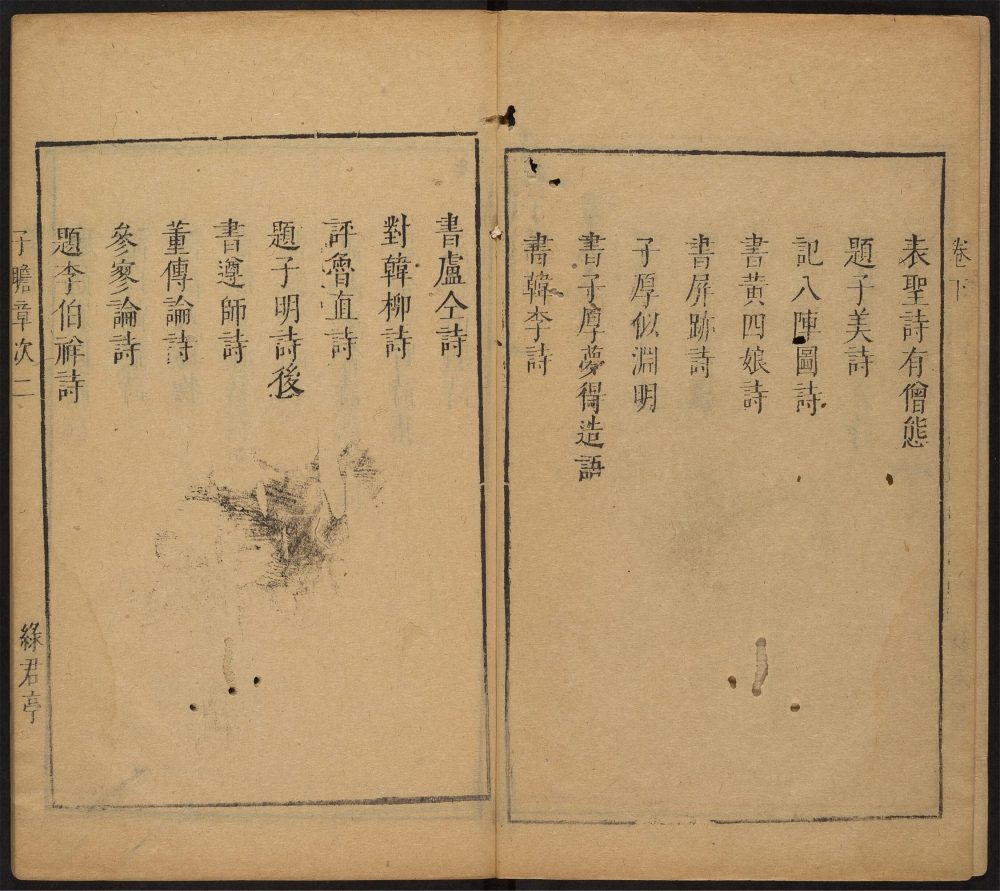 卷下
表聖詩有僧態
題子美詩
記八陣圖詩
書黃四娘詩
書屏跡詩
子厚似淵明
書子厚夢得造語
書韓李詩
書盧仝詩
對韓柳詩
評魯直詩
題子明詩後
書遵師詩
董傳論詩
參寥論詩
題李伯祥詩
子瞻章次 二
綠君亭